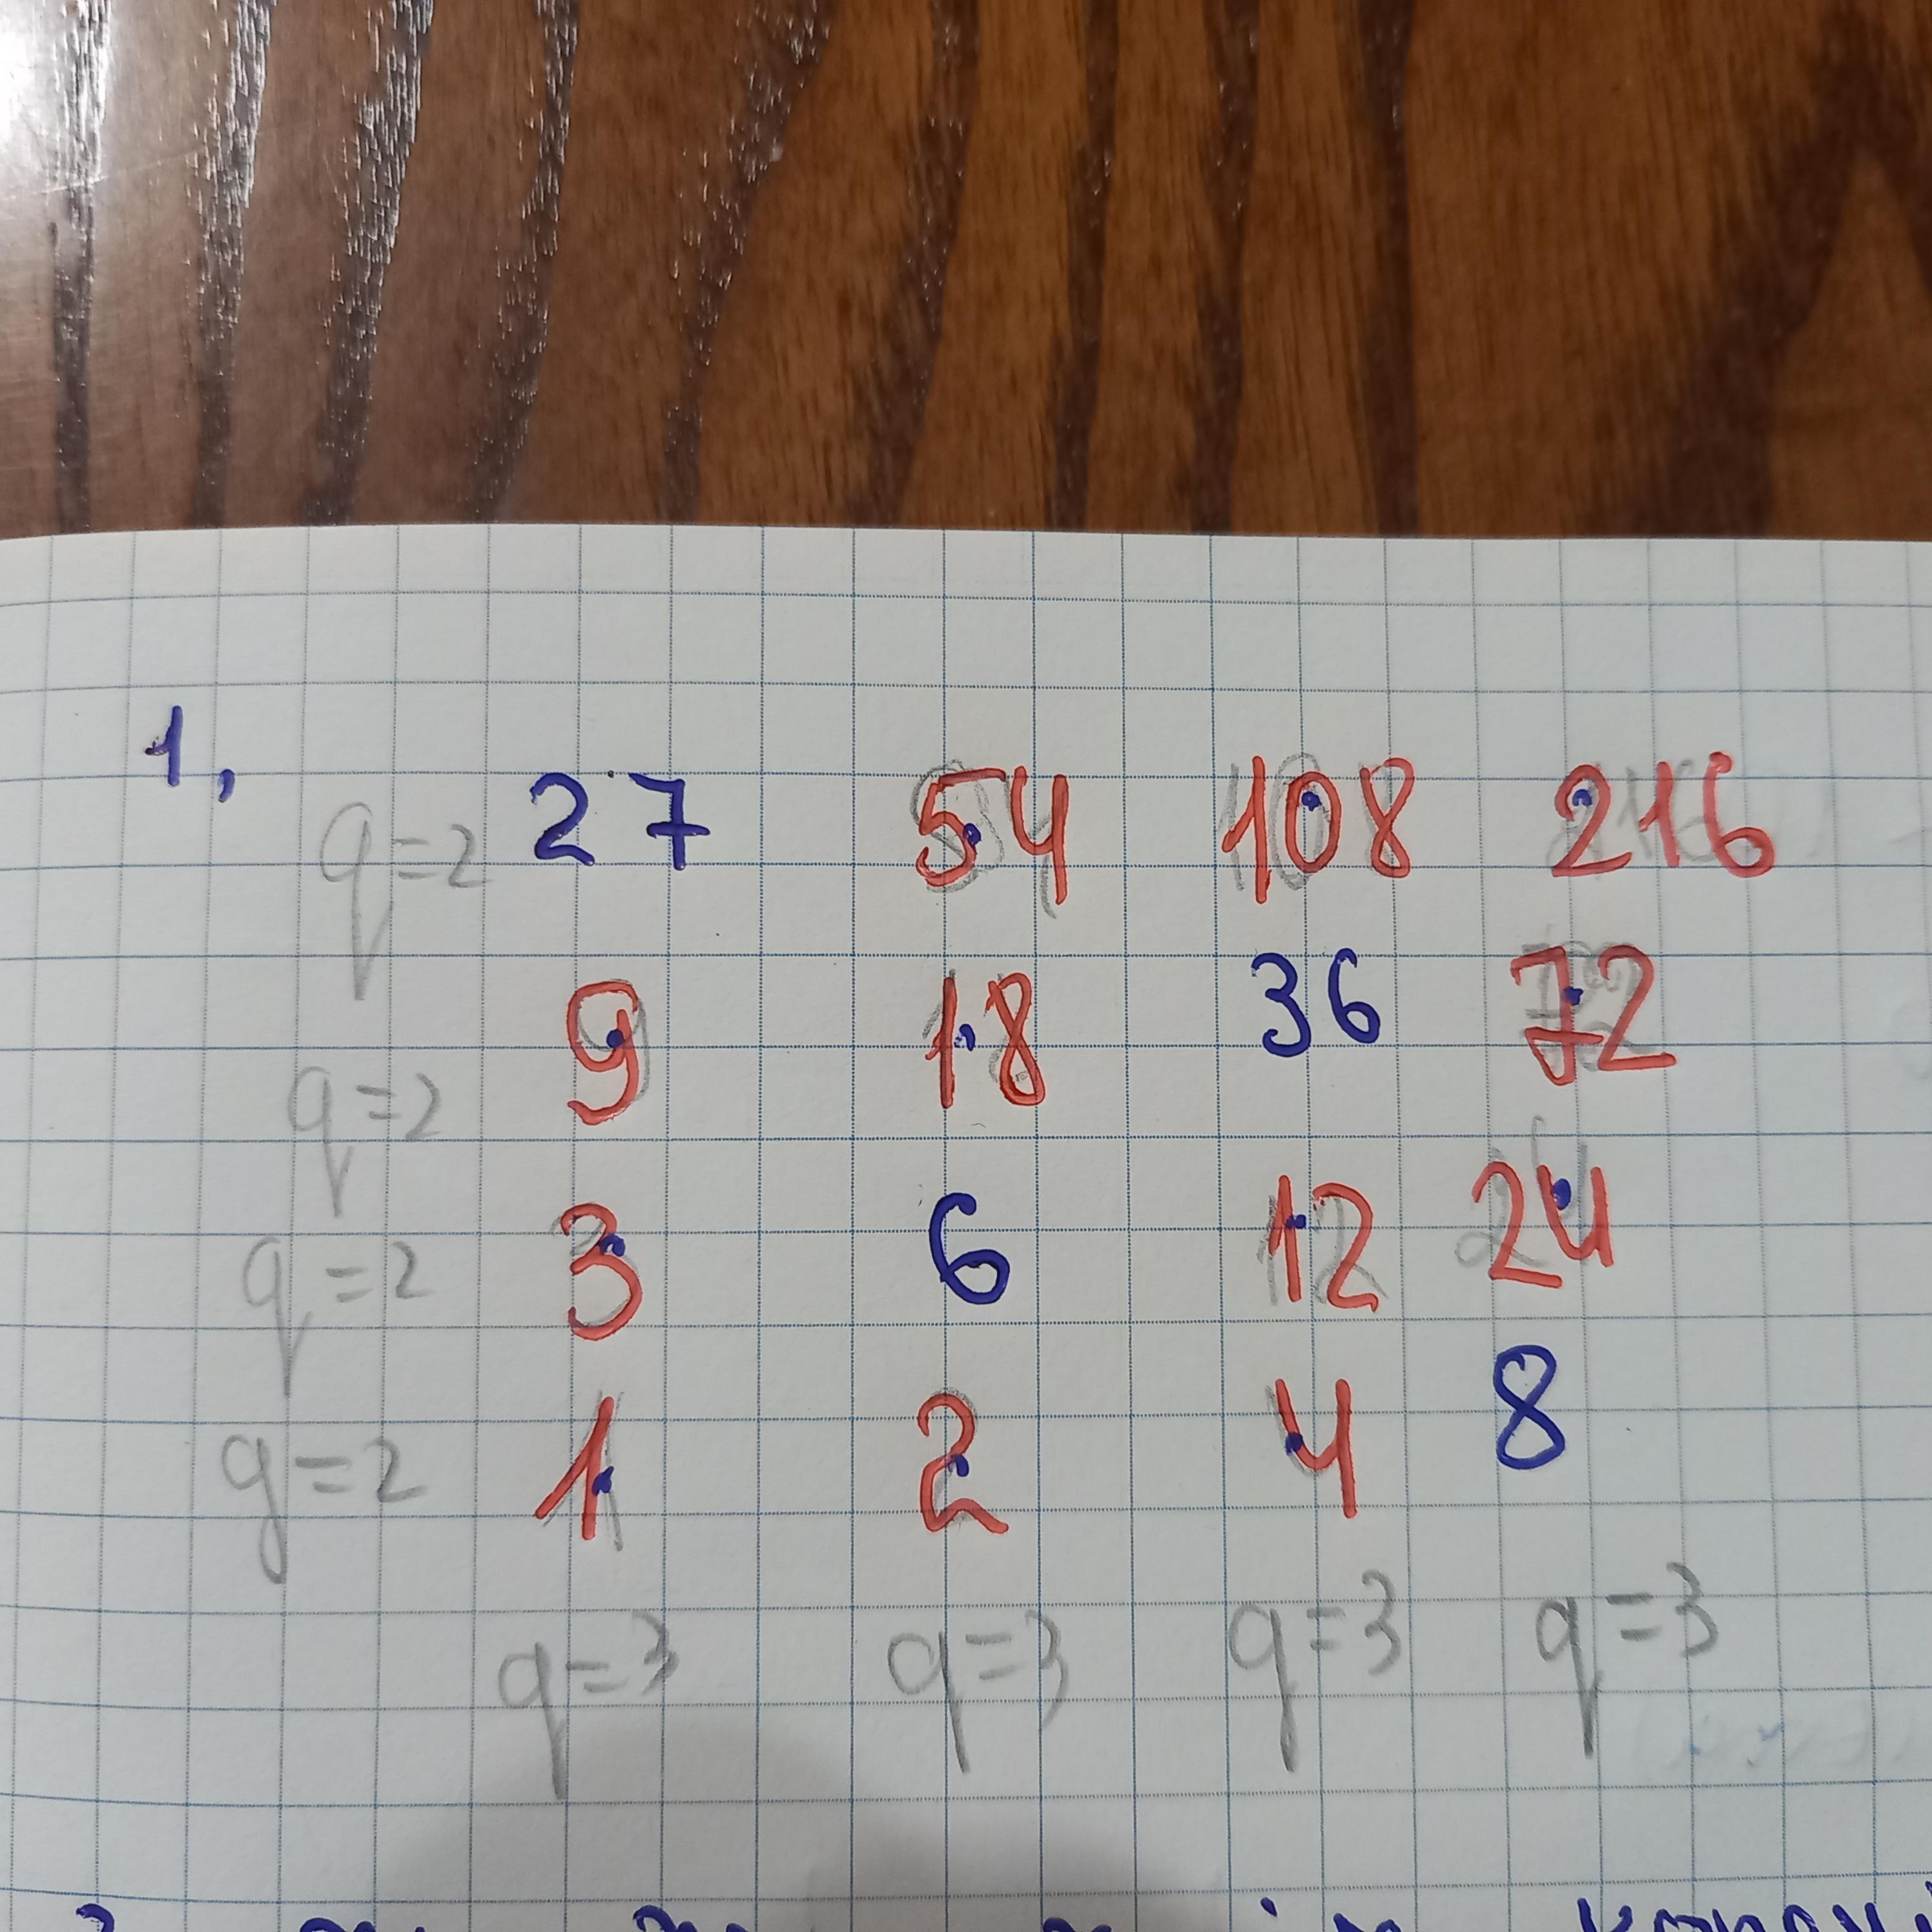 1,
q=2 27 54 108 216
q=2 9 18 36 72
q=2 3 6 12 24
q=2 1 2 4 8
q=3 q=3 q=3 q=3